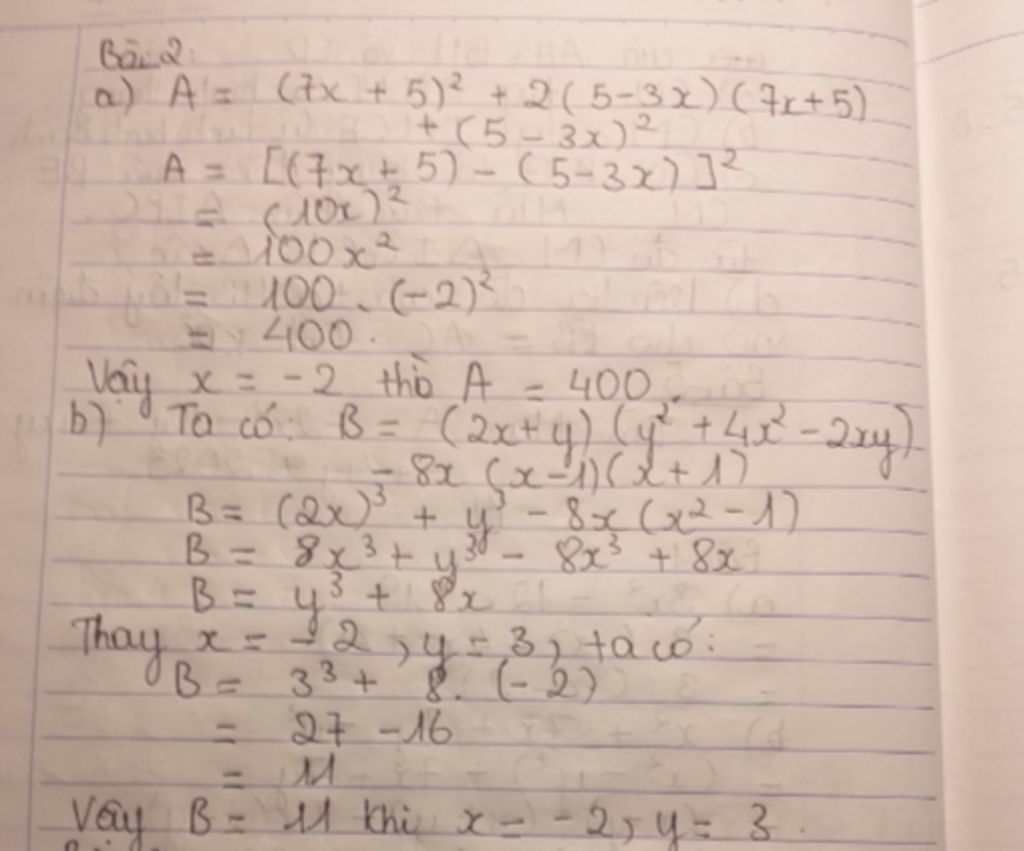 Bài 2:
a) A = (7x + 5)² + 2(5-3x)(7x+5)
+ (5 - 3x)²
A = [(7x + 5) - (5-3x)]²
= (10x)²
= 100x²
= 100 . (-2)²
= 400.
Vậy x = -2 thì A = 400.
b) Ta có: B = (2x+y)(y² + 4x² - 2xy)
- 8x (x-1)(x+1)
B = (2x)³ + y³ - 8x(x² - 1)
B = 8x³ + y³ - 8x³ + 8x
B = y³ + 8x
Thay x = -2, y = 3, ta có:
B = 3³ + 8. (-2)
= 27 - 16
= 11
Vậy B = 11 khi x = -2, y = 3.